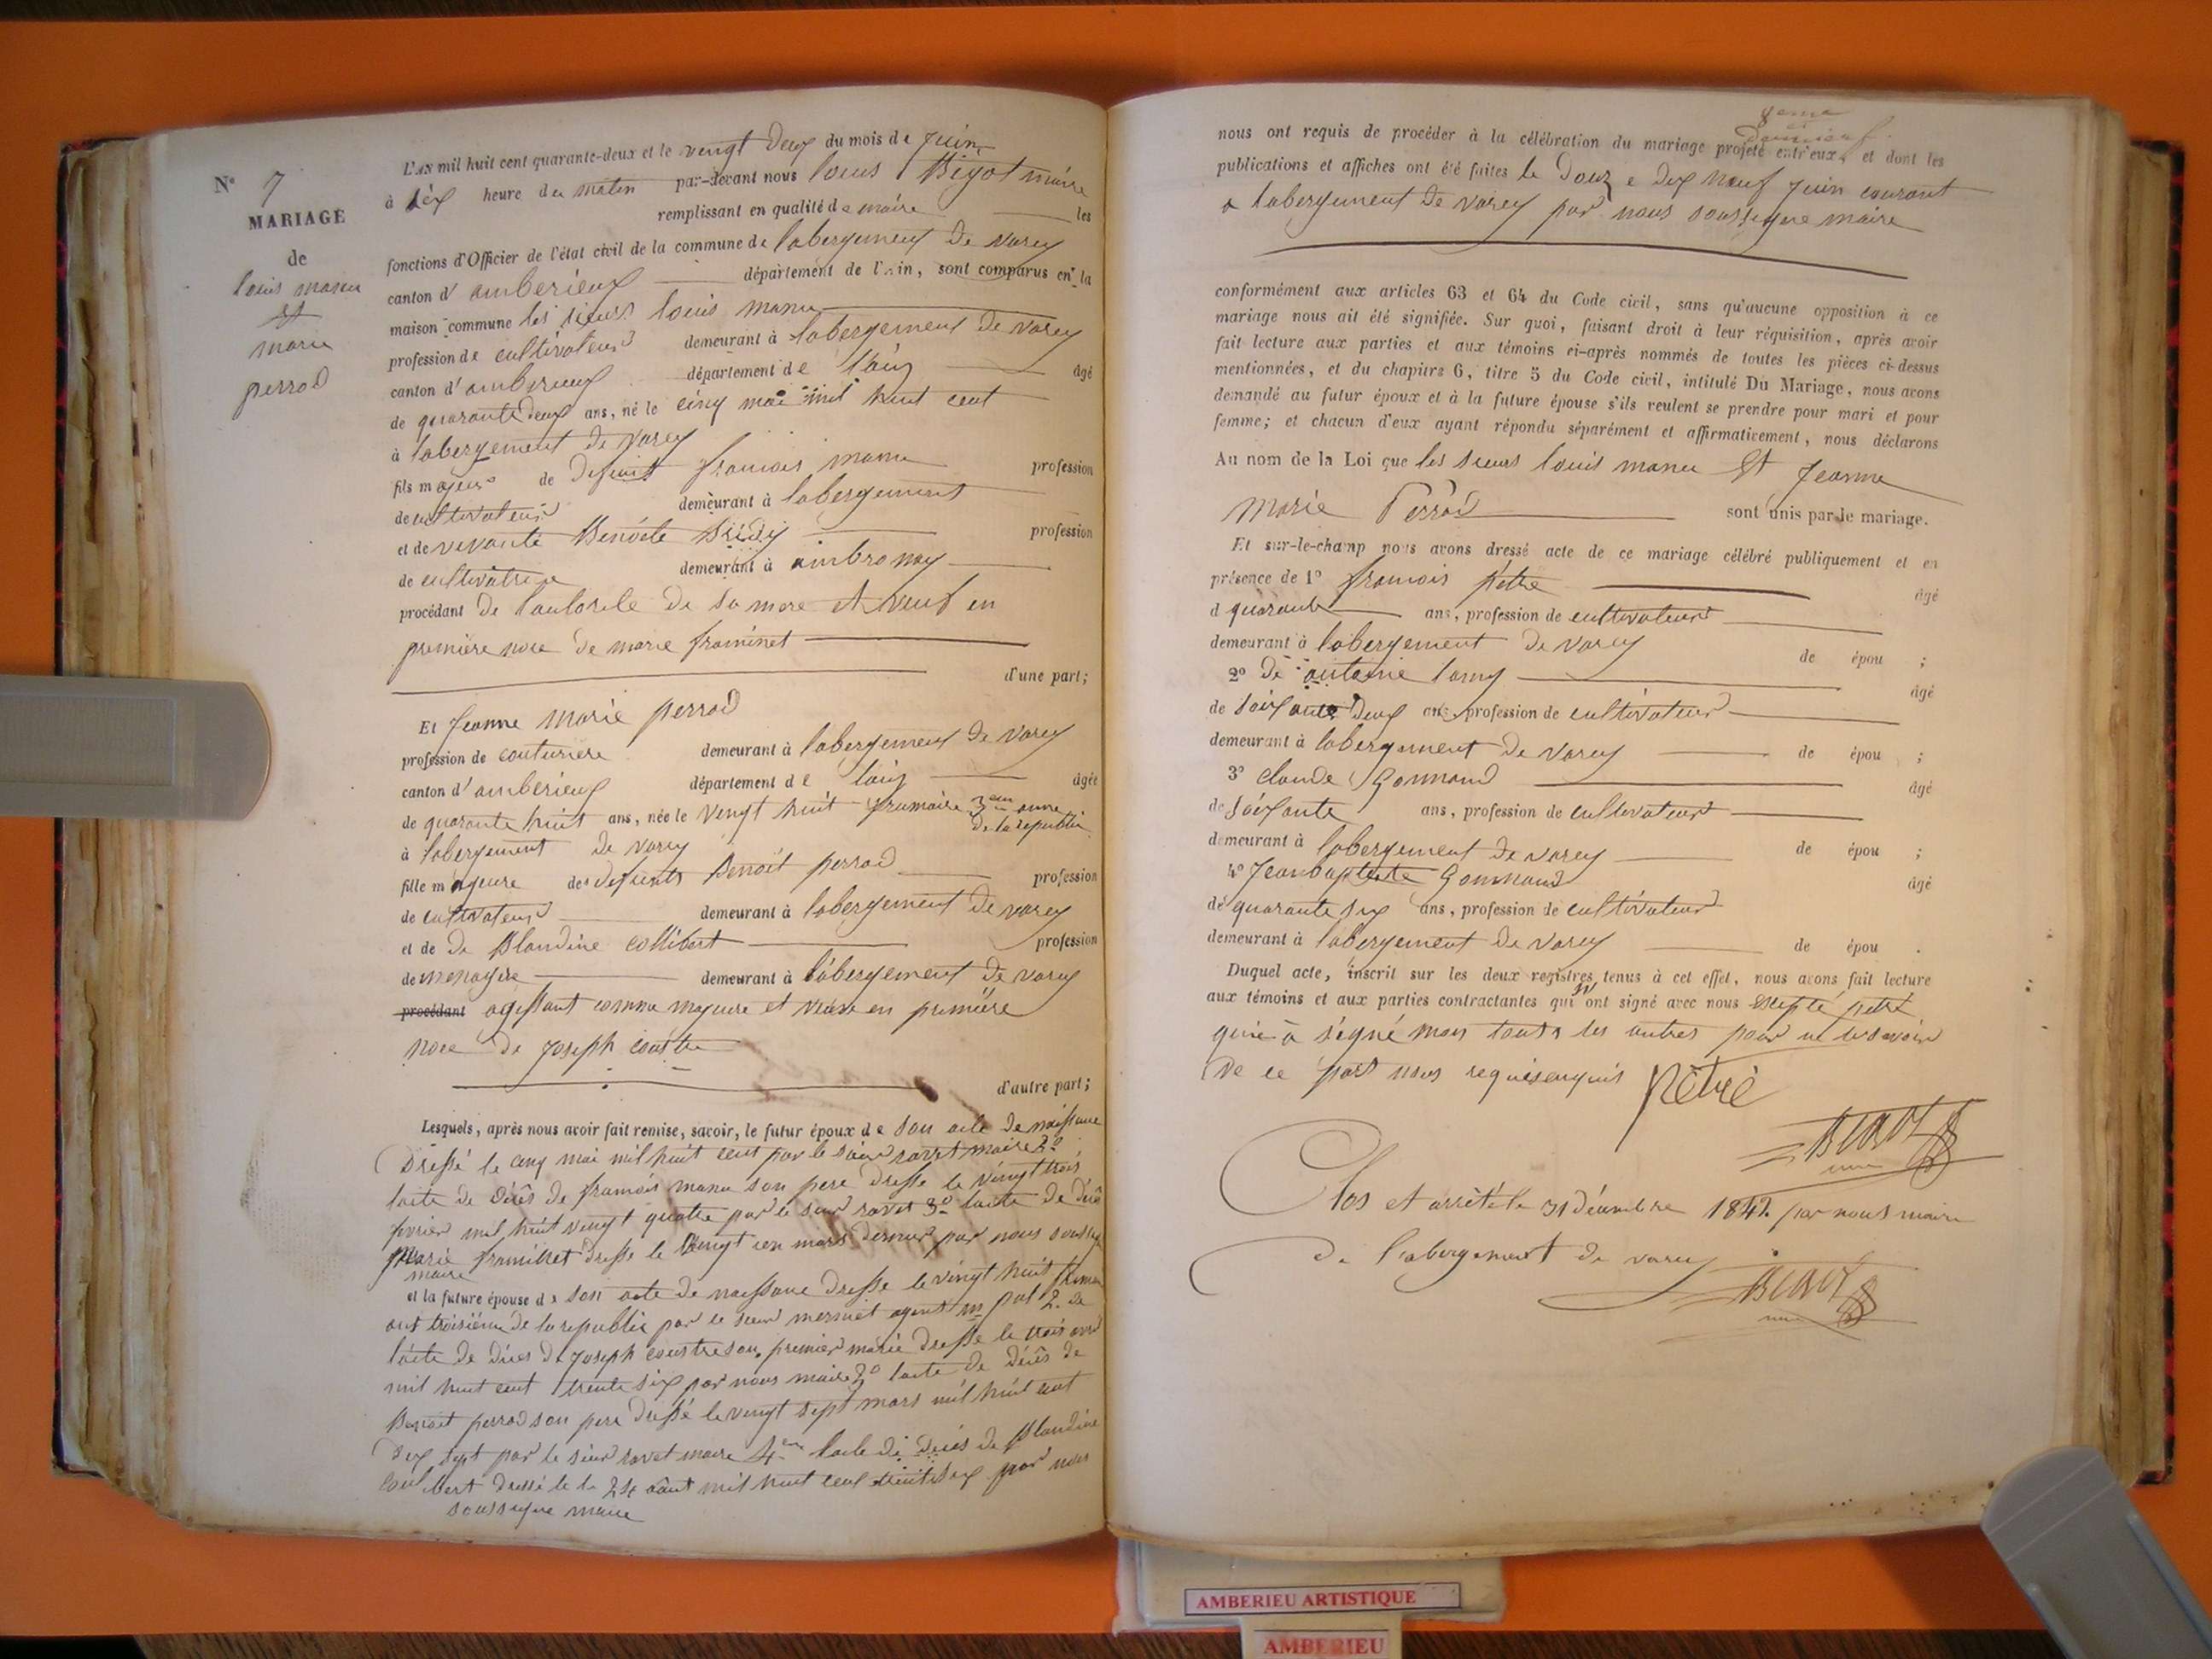 N° 7
MARIAGE
de
louis manu
et
marie
perrod
L'AN mil huit cent quarante-deux et le vengt deux du mois de juin
à six heure du matin par-devant nous louis Bigot maire
remplissant en qualité de maire les
fonctions d'Officier de l'état civil de la commune de labergement de varey
canton d' amberieux département de l'ain, sont comparus en la
maison commune les sieurs louis manu
profession de cultivateur demeurant à labergement de varey
canton d' amberieux département de l'ain âgé
de quarante deux ans, né le cinq mai mil huit cent
à labergement de varey
fils majeur de defunt francois manu profession
de cultivateur demeurant à labergement
et de vivante Benoite profession
de cultivatrice demeurant à ambronay
procédant de lautorite de sa mere et veuf en
premiere noce de marie framinet
d'une part;
Et Jeanne marie perrod
profession de couturiere demeurant à labergement de varey
canton d' amberieux département de l'ain âgée
de quarante huit ans, née le vingt huit frumaire 3em anne
de la republic
à labergement de varey
fille majeure des defunts Benoit perrod profession
de cultivateur demeurant à labergement de varey
et de de Blandine collibert profession
de menagere demeurant à labergement de varey
procédant agissant comme majeure et veuve en premiere
noce de joseph coustre
d'autre part;
Lesquels, après nous avoir fait remise, savoir, le futur époux de son acte de naissance
Dressé le cinq mai mil huit cent par le sieur ravet maire 2°
lacte de décès de framois manu son pere dresse le vingt trois
fevrier mil huit vengt quatre par le sieur ravet 3° lacte de décè
Marie framinet dresse le vengt un mars dernier par nous soussigne
maire
et la future épouse de son acte de naissance dresse le vingt huit frimaire
ans troisiéme de la republic par le sieur mermet agent 2. de
lacte de déces de joseph coustre son premier marie dresse le trois avril
mil huit cent trente six par nous maire 3° lacte de décès de
Benoit perrod son pere dressé le vengt sept mars mil huit cent
dix sept par le sieur ravet maire 4em lacte de décés de Blandine
coulibert dressé le 24 aout mil huit cent trente six par nous
soussigne maire
nous ont requis de procéder à la célébration du mariage projeté entr'eux, et dont les
publications et affiches ont été faites le Douz e dix neuf juin courant
a labergement de varey par nous soussigne maire
conformément aux articles 63 et 64 du Code civil, sans qu'aucune opposition à ce
mariage nous ait été signifiée. Sur quoi, faisant droit à leur réquisition, après avoir
fait lecture aux parties et aux témoins ci-après nommés de toutes les pièces ci-dessus
mentionnées, et du chapitre 6, titre 5 du Code civil, intitulé Du Mariage, nous avons
demandé au futur époux et à la future épouse s'ils veulent se prendre pour mari et pour
femme; et chacun d'eux ayant répondu séparément et affirmativement, nous déclarons
Au nom de la Loi que les sieurs louis manu et Jeanne
Marie Perrod sont unis par le mariage.
Et sur-le-champ nous avons dressé acte de ce mariage célébré publiquement et en
présence de 1° framois pétre âgé
d quarante ans, profession de cultivateur
demeurant à labergement de varey de épou ;
2° de antoine lamy âgé
de soixante deux ans, profession de cultivateur
demeurant à labergement de varey de épou ;
3° claude Gonnand âgé
de soixante ans, profession de cultivateur
demeurant à labergement de varey de épou ;
4° Jean baptiste Gonnand âgé
de quarante six ans, profession de cultivateur
demeurant à labergement de varey de épou .
Duquel acte, inscrit sur les deux registres tenus à cet effet, nous avons fait lecture
aux témoins et aux parties contractantes qui ont signé avec nous excepté petre
qui a signé mon touts les autres pour ne le savoir
De ce part nous requis
Pétre
BIGOT
Clos et arrêté le 31 décembre 1842 par nous maire
de l'abergement de varey
BIGOT
AMBERIEU ARTISTIQUE
AMBERIEU